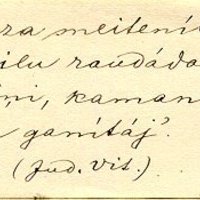 ra meitení
ilu raudáda
ņi, kaman
ganítáj.
(Jud. Vit.)